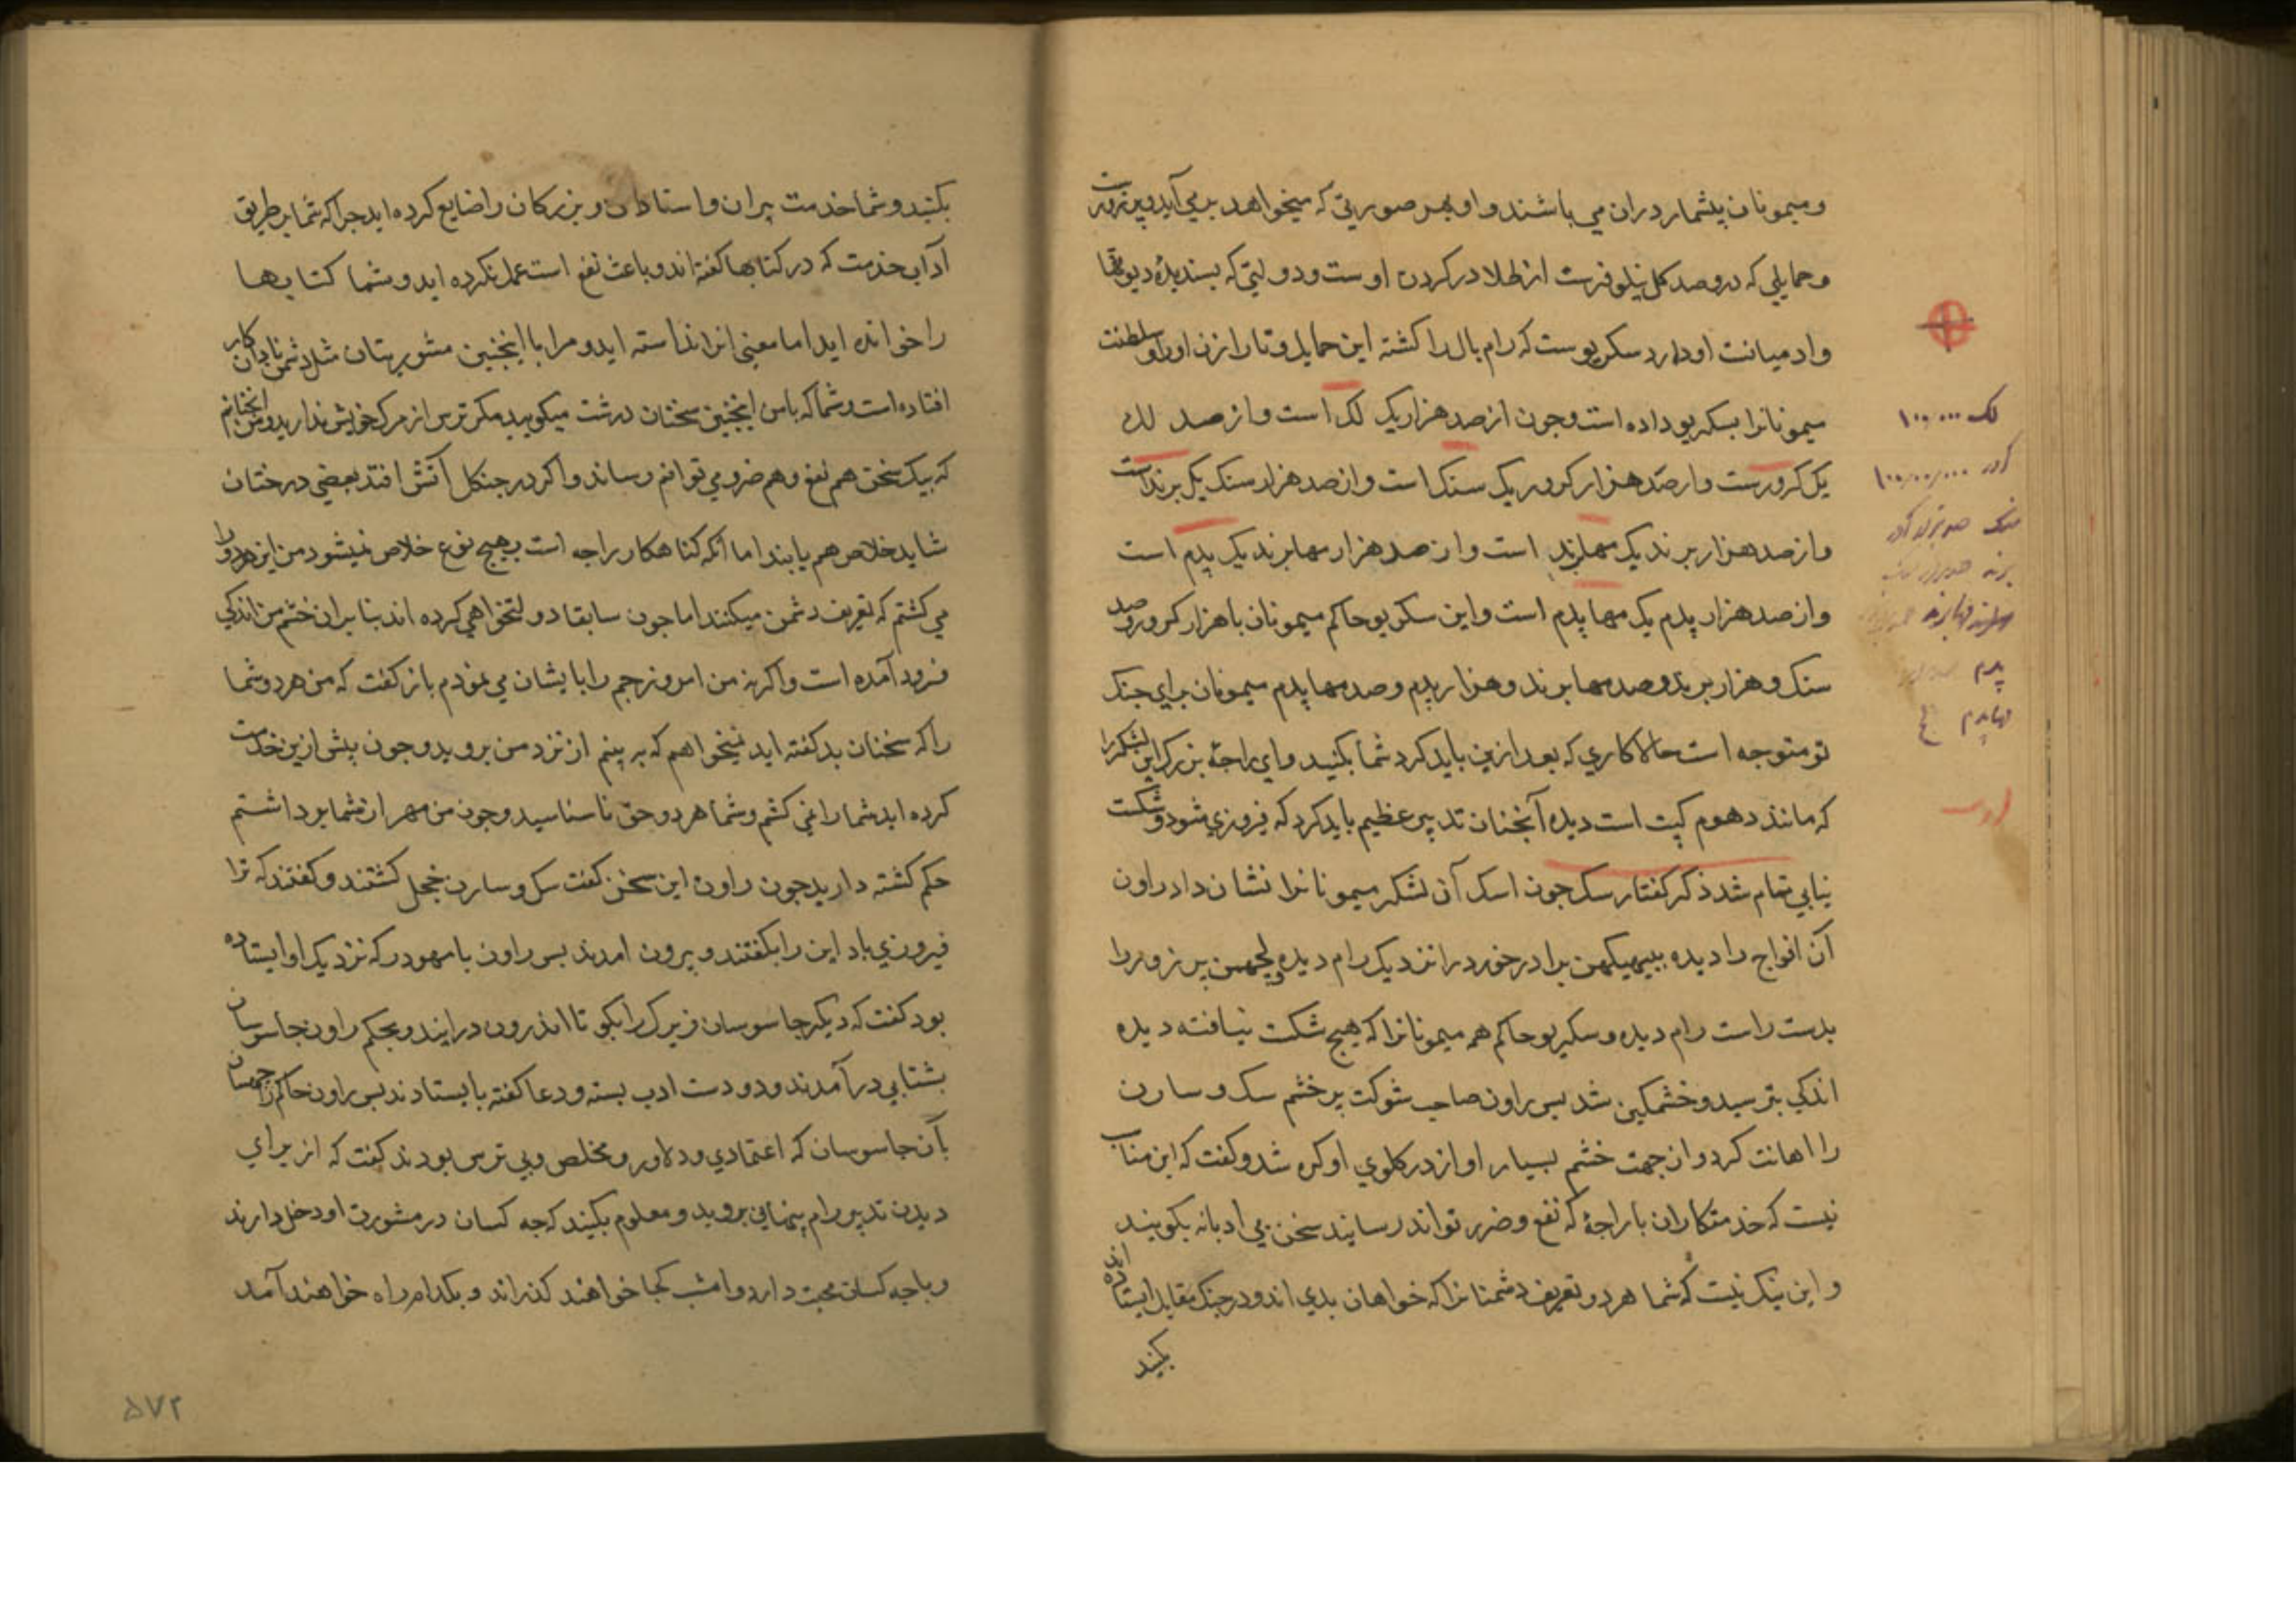 و میمونان بیشمار دران می باشند و او بهر صورتی که میخواهد بر می آید و پر زورست
و حمایلی که درو صد کل نیلوفرست از طلا در کردن اوست و دولتی که پسندیدهٔ دیوتها
و ادمیانست او دارد سکریوست که رام بال را کشته این حمایل و تارا زن او را و سلطنت
میمونانرا بسکریو داده است و چون از صد هزار یک لک است و از صد لک
یک کرورست و از صد هزار کرور یک سنک است و از صد هزار سنک یک برندست
و از صد هزار برند یک مهابرند است و از صد هزار مهابرند یک پدم است
و از صد هزار پدم یک مها پدم است و این سکریو حاکم میمونان با هزار کرور و صد
سنک و هزار برند و صد مهابرند و هزار پدم و صد مهاپدم میمونان برای جنک
تو متوجه است حالا کاری که بعد ازین باید کرد شما بکنید و ای راجهٔ بزرک این لشکر را
که مانند دهوم کیت است دیده آنچنان تدبیر عظیم باید کرد که فیروزی شود و شکست
نیابی تمام شد ذکر کفتار سک چون اسک آن لشکر میمونانرا نشان داد راون
آن افواج را دیده ببیهیکهن برادر خود را نزدیک رام دیده و لچهمن پر زور را
بدست راست رام دیده و سکریو حاکم همه میمونانرا که هیچ شکست نیافته دیده
اندکی بترسید و خشمکین شد پس راون صاحب شوکت پر خشم سک و سارن
را اهانت کرد و از جهت خشم بسیار اواز در کلوی او کره شد و کفت که این مناسب
نیست که خدمتکاران با راجهٔ که نفع و ضرر تواند رسانید سخن بی ادبانه بکویند
و این نیک نیست که شما هر دو تعریف دشمنانرا که خواهان بدی اند و در جنک مقابل ایستاده اند
بکنید
لک ۱۰۰،۰۰۰
کرور ۱۰۰،۰۰،۰۰۰
پدم
مهاپدم
بکنید و شما خدمت پیران و استادان و بزرکان را ضایع کرده اید چرا که شما بر طریق
آداب خدمت که در کتابها کفته اند و باعث نفع است عمل نکرده اید و شما کتابها
را خوانده اید اما معنی انرا ندانسته اید و مرا با اینچنین مشورتیان مثل دشمن نادان کار
افتاده است و شما که با من اینچنین سخنان درشت میکویید مکر ترس از مرک خویش ندارید و من انچنانم
که بیک سخن هم نفع و هم ضرر می توانم رساند و اکر در جنکل آتش افتد بعضی درختان
شاید خلاص هم یابند اما آنکه کناهکار راجه است بهیچ نوع خلاص نمیشود من این هردو را
می کشتم که تعریف دشمن میکنند اما چون سابقا دولتخواهی کرده اند بنا بران خشم من اندکی
فرود آمده است و اکر نه من امروز رحم را بایشان می نمودم باز کفت که من هر دو شما
را که سخنان بد کفته اید نمیخواهم که به بینم از نزد من بروید و چون پیش ازین خدمت
کرده اید شما را نمی کشم و شما هر دو حق ناسناسید و چون من مهر از شما برداشتم
حکم کشته دارید چون راون این سخن کفت سک و سارن خجل کشتند و کفتند که ترا
فیروزی باد این را بکفتند و بیرون امدند پس راون با مهودر که نزدیک او ایستاده
بود کفت که دیکر جاسوسان زیرک را بکو تا اندرون درایند و بحکم راون جاسوسان
بشتابی درآمدند و دو دست ادب بسته و دعا کفته بایستادند پس راون حاکم راجهسان
بآن جاسوسان که اعتمادی و دلاور و مخلص و بی ترس بودند کفت که از برای
دیدن تدبیر رام پنهانی بروید و معلوم بکنید که چه کسان در مشورت او دخل دارند
و با چه کسان محبت دارد و امشب کجا خواهند کذراند و بکدام راه خواهند آمد
۵۷۲